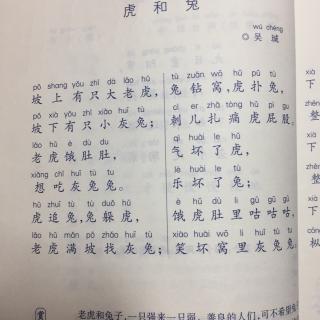 虎和兔
wú chéng
◎吴城
pō shang yǒu zhī dà lǎo hǔ
坡上有只大老虎，
pō xià yǒu zhī xiǎo huī tù
坡下有只小灰兔；
lǎo hǔ è dù du
老虎饿肚肚，
xiǎng chī huī tù tu
想吃灰兔兔。
hǔ zhuī tù tù duǒ hǔ
虎追兔，兔躲虎，
lǎo hǔ mǎn pō zhǎo huī tù
老虎满坡找灰兔；
tù zuān wō hǔ pū tù
兔钻窝，虎扑兔，
cì er zhā tòng hǔ pì gu
刺儿扎痛虎屁股。
qì huài le hǔ
气坏了虎，
lè huài le tù
乐坏了兔；
è hǔ dù li gū gū gū
饿虎肚里咕咕咕，
xiào huài wō li huī tù tu
笑坏窝里灰兔兔。
赏
老虎和兔子，一只强来一只弱。善良的人们，可不希望兔